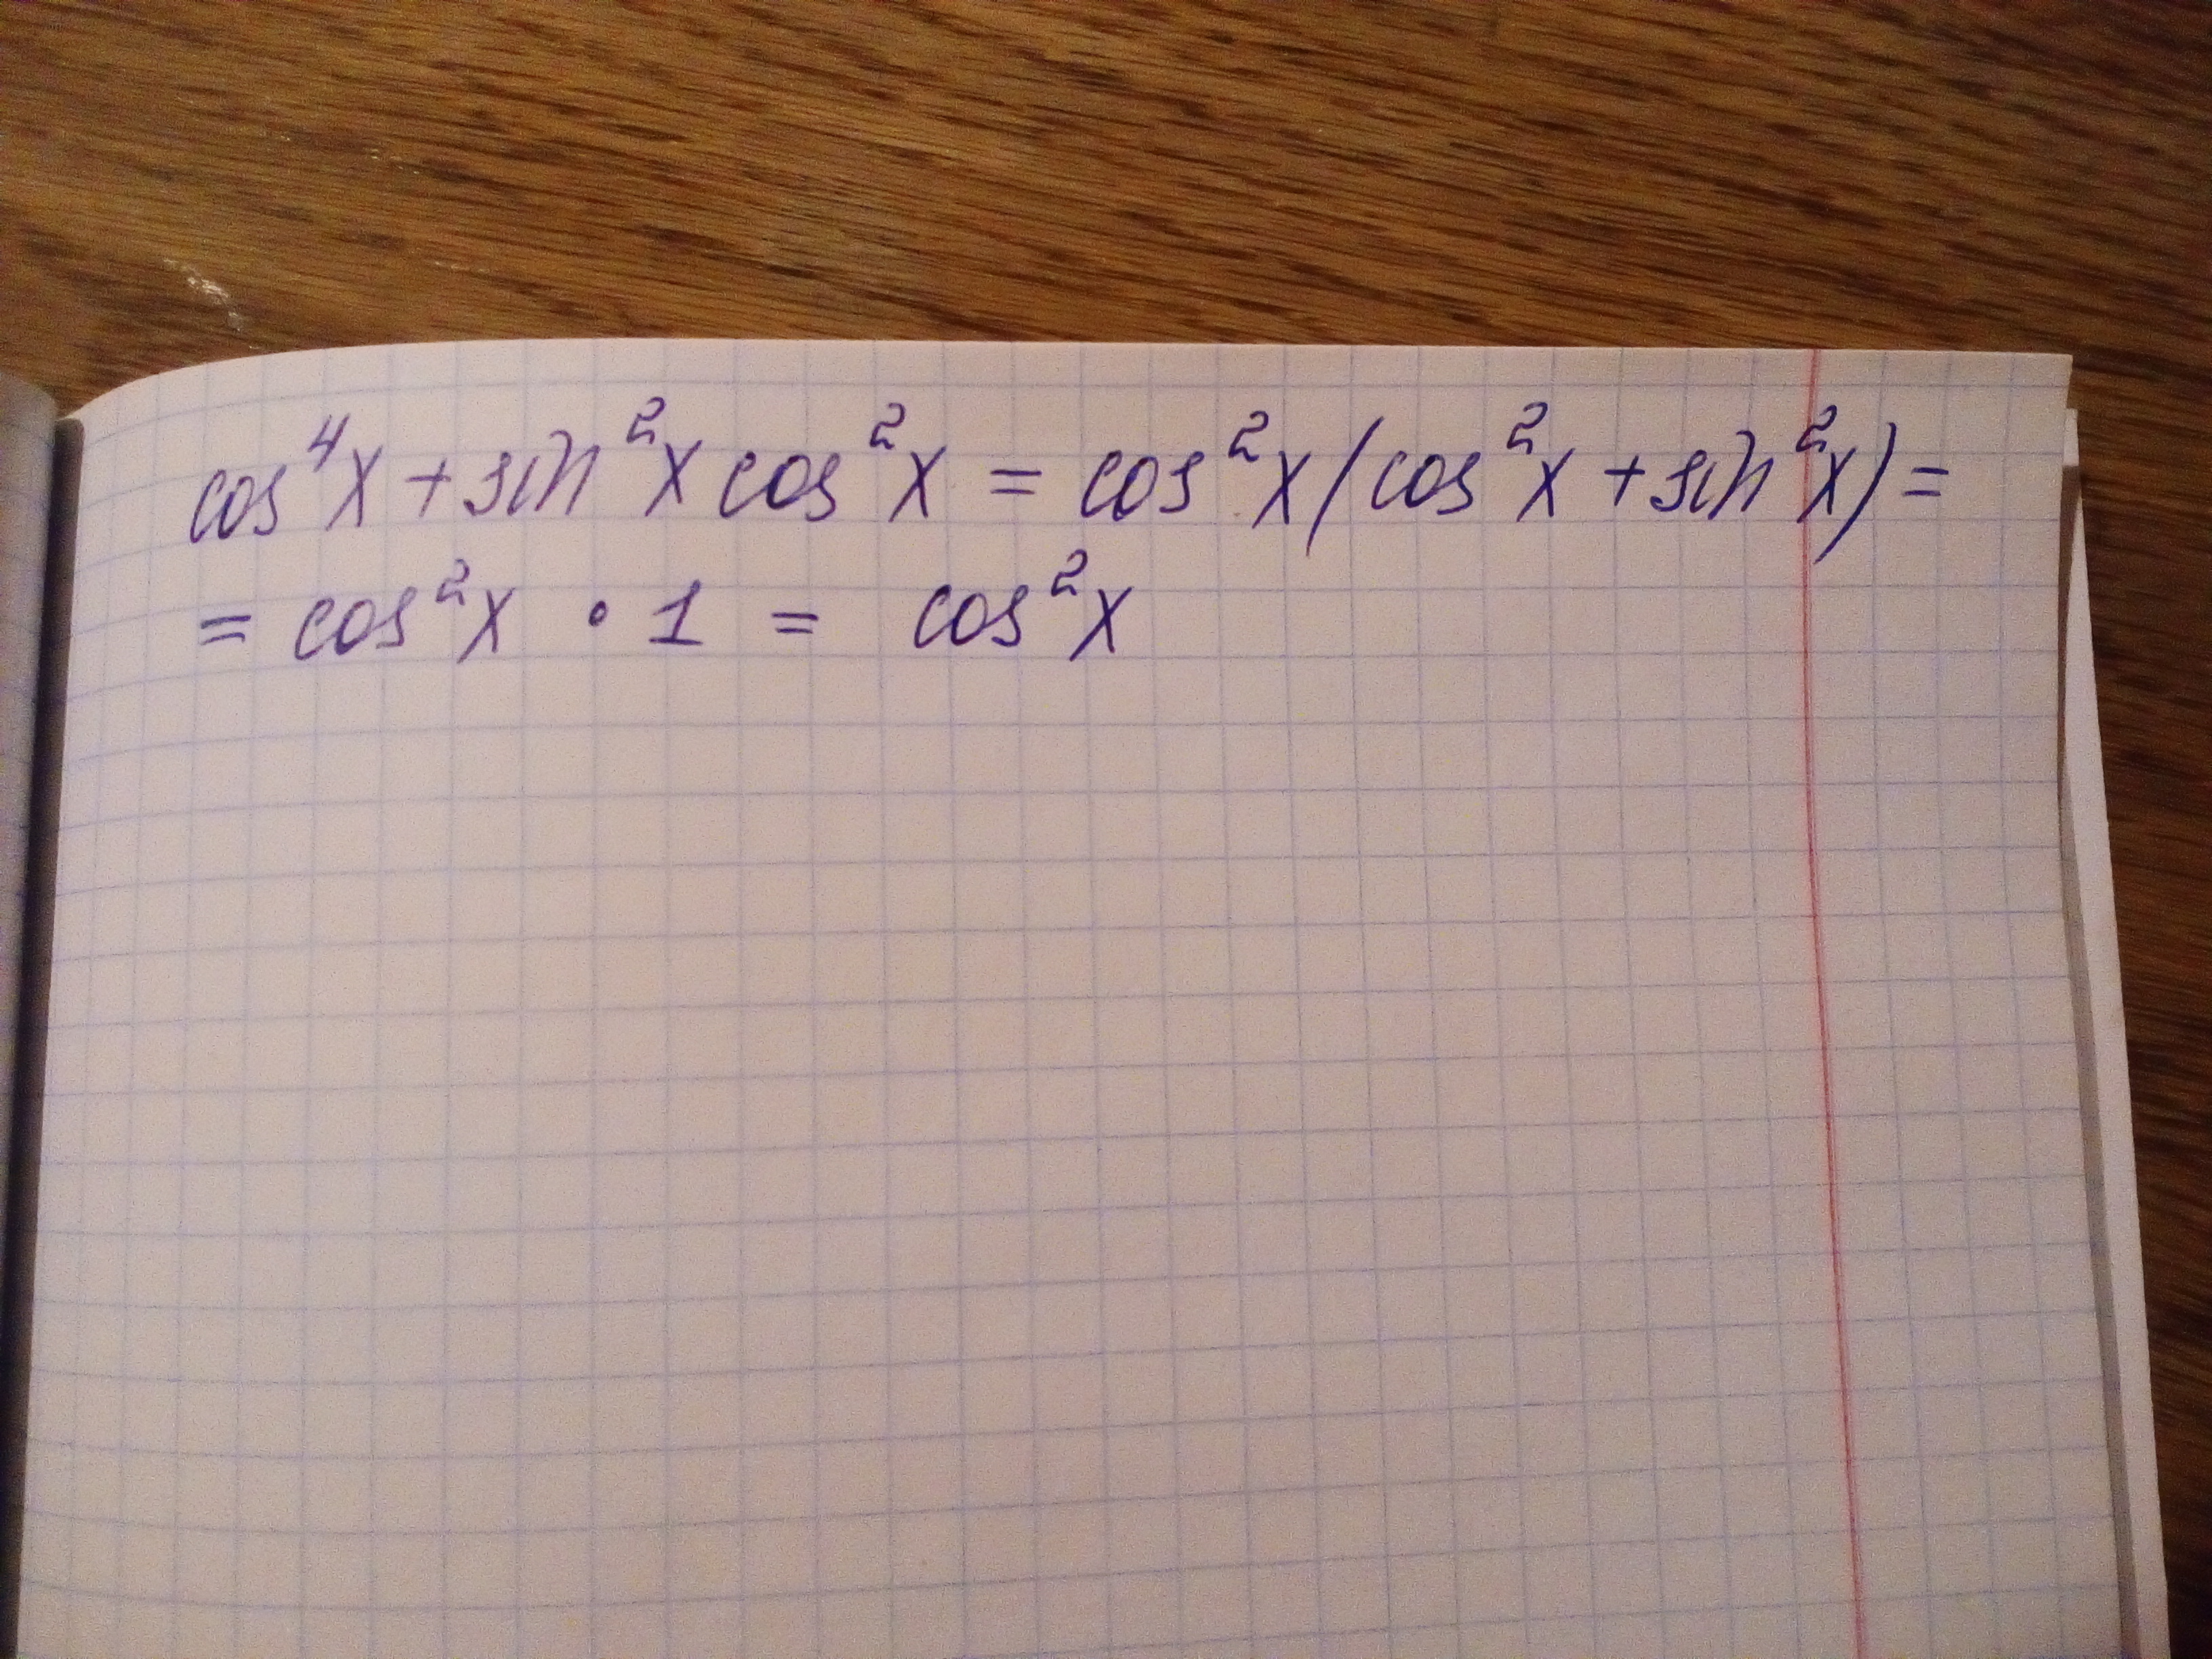 cos⁴x + sin²x cos²x = cos²x (cos²x + sin²x) =
= cos²x · 1 = cos²x